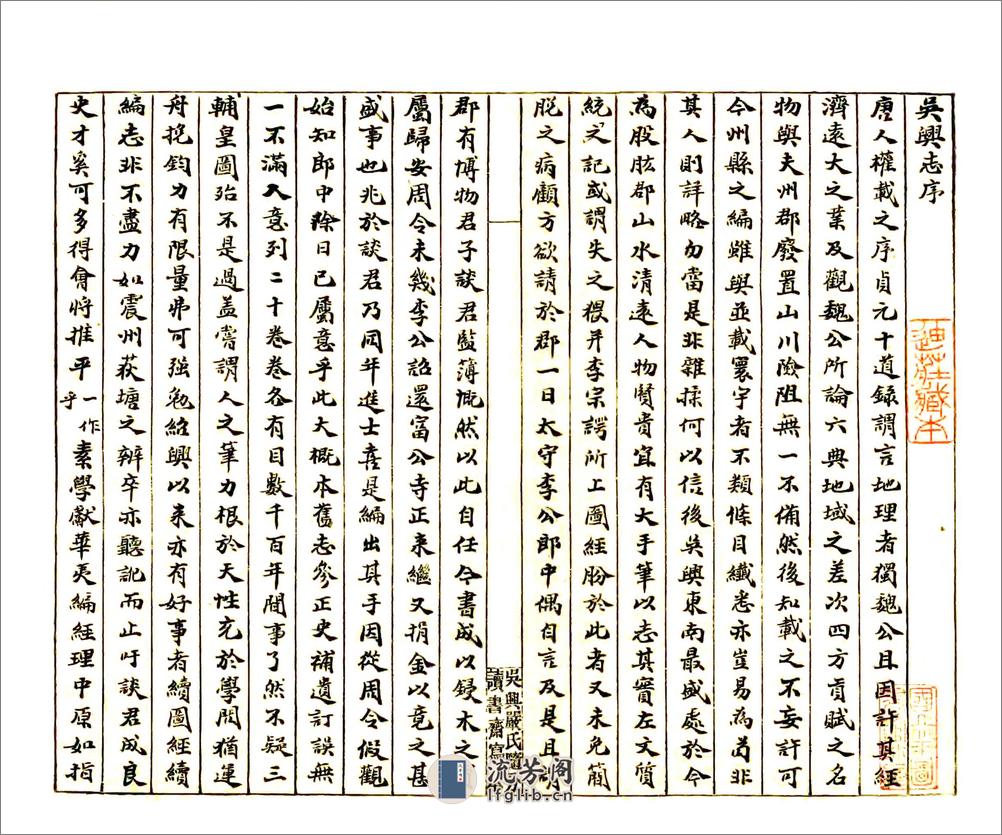 吳興志序
唐人權載之序貞元十道錄謂言地理者獨魏公且因許其經
濟遠大之業及觀魏公所論六典地域之差次四方貢賦之名
物與夫州郡廢置山川險阻無一不備然後知載之不妄許可
今州縣之編雖與並載寰宇者不類條目纖悉亦豈易為苟非
其人則詳略勿當是非雜揉何以信後吳興東南最盛處於今
為股肱郡山水清遠人物賢貴宜有大手筆以志其實左文質
統之記或謂失之猥并李宗諤所上圖經肦於此者又未免簡
脫之病顧方欲請於郡一日太守李公郎中偶自言及是且
郡有博物君子談君監簿慨然以此自任今書成以鋟木之
屬歸安周令未幾李公詔還富公寺正來繼又捐金以竟之甚
盛事也兆於談君乃同年進士喜是編出其手因從周令假觀
始知郎中除日已屬意乎此大概本舊志參正史補遺訂誤無
一不滿人意列二十卷卷各有目數千百年閒事了然不疑三
輔皇圖殆不是過盖嘗謂人之筆力根於天性充於學問猶運
舟挽鈞力有限量弗可强勉紹興以來亦有好事者續圖經續
編志非不盡力如震州荻塘之辨卒亦聽訛而止吁談君成良
史才奚可多得會將推平一作乎素學獻華夷編經理中原如指
吳興嚴氏隨分
讀書齋寫
迪莊藏本
流芳阁
lfglib.cn